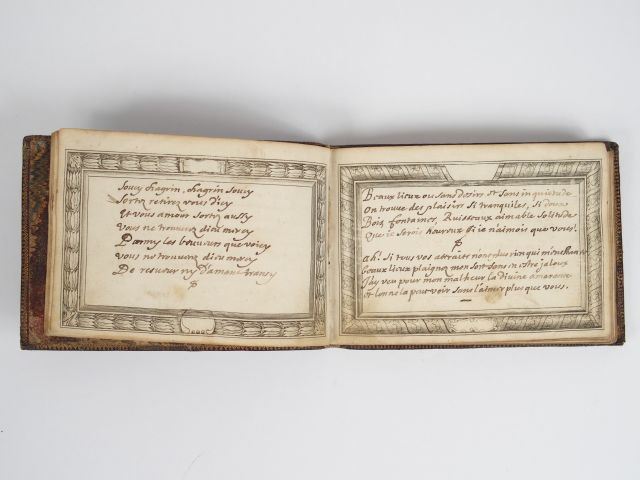 Soucy chagrin, chagrin soucy
Sortez retirez vous d'icy
Et vous amour sortez aussy
Vous ne trouverez dieu mercy
Parmy les beuveurs que voicy
Vous ne trouverez dieu mercy
De resveur ny d'amant transy
Beaux lieux ou sans desirs et sans inquietude
On trouve des plaisirs si tranquiles, si doux
Bois, fontaines, Ruisseaux aimable solitude
Que je serois heureux si je n'aimois que vous.
Ah! Si tous vos attraits n'ont plus rien qui m'enchante
beaux lieux plaignez mon sort sans en estre jaloux
J'ay veu pour mon malheur la divine amarante
et l'on ne la peut voir sans l'aimer plus que vous.